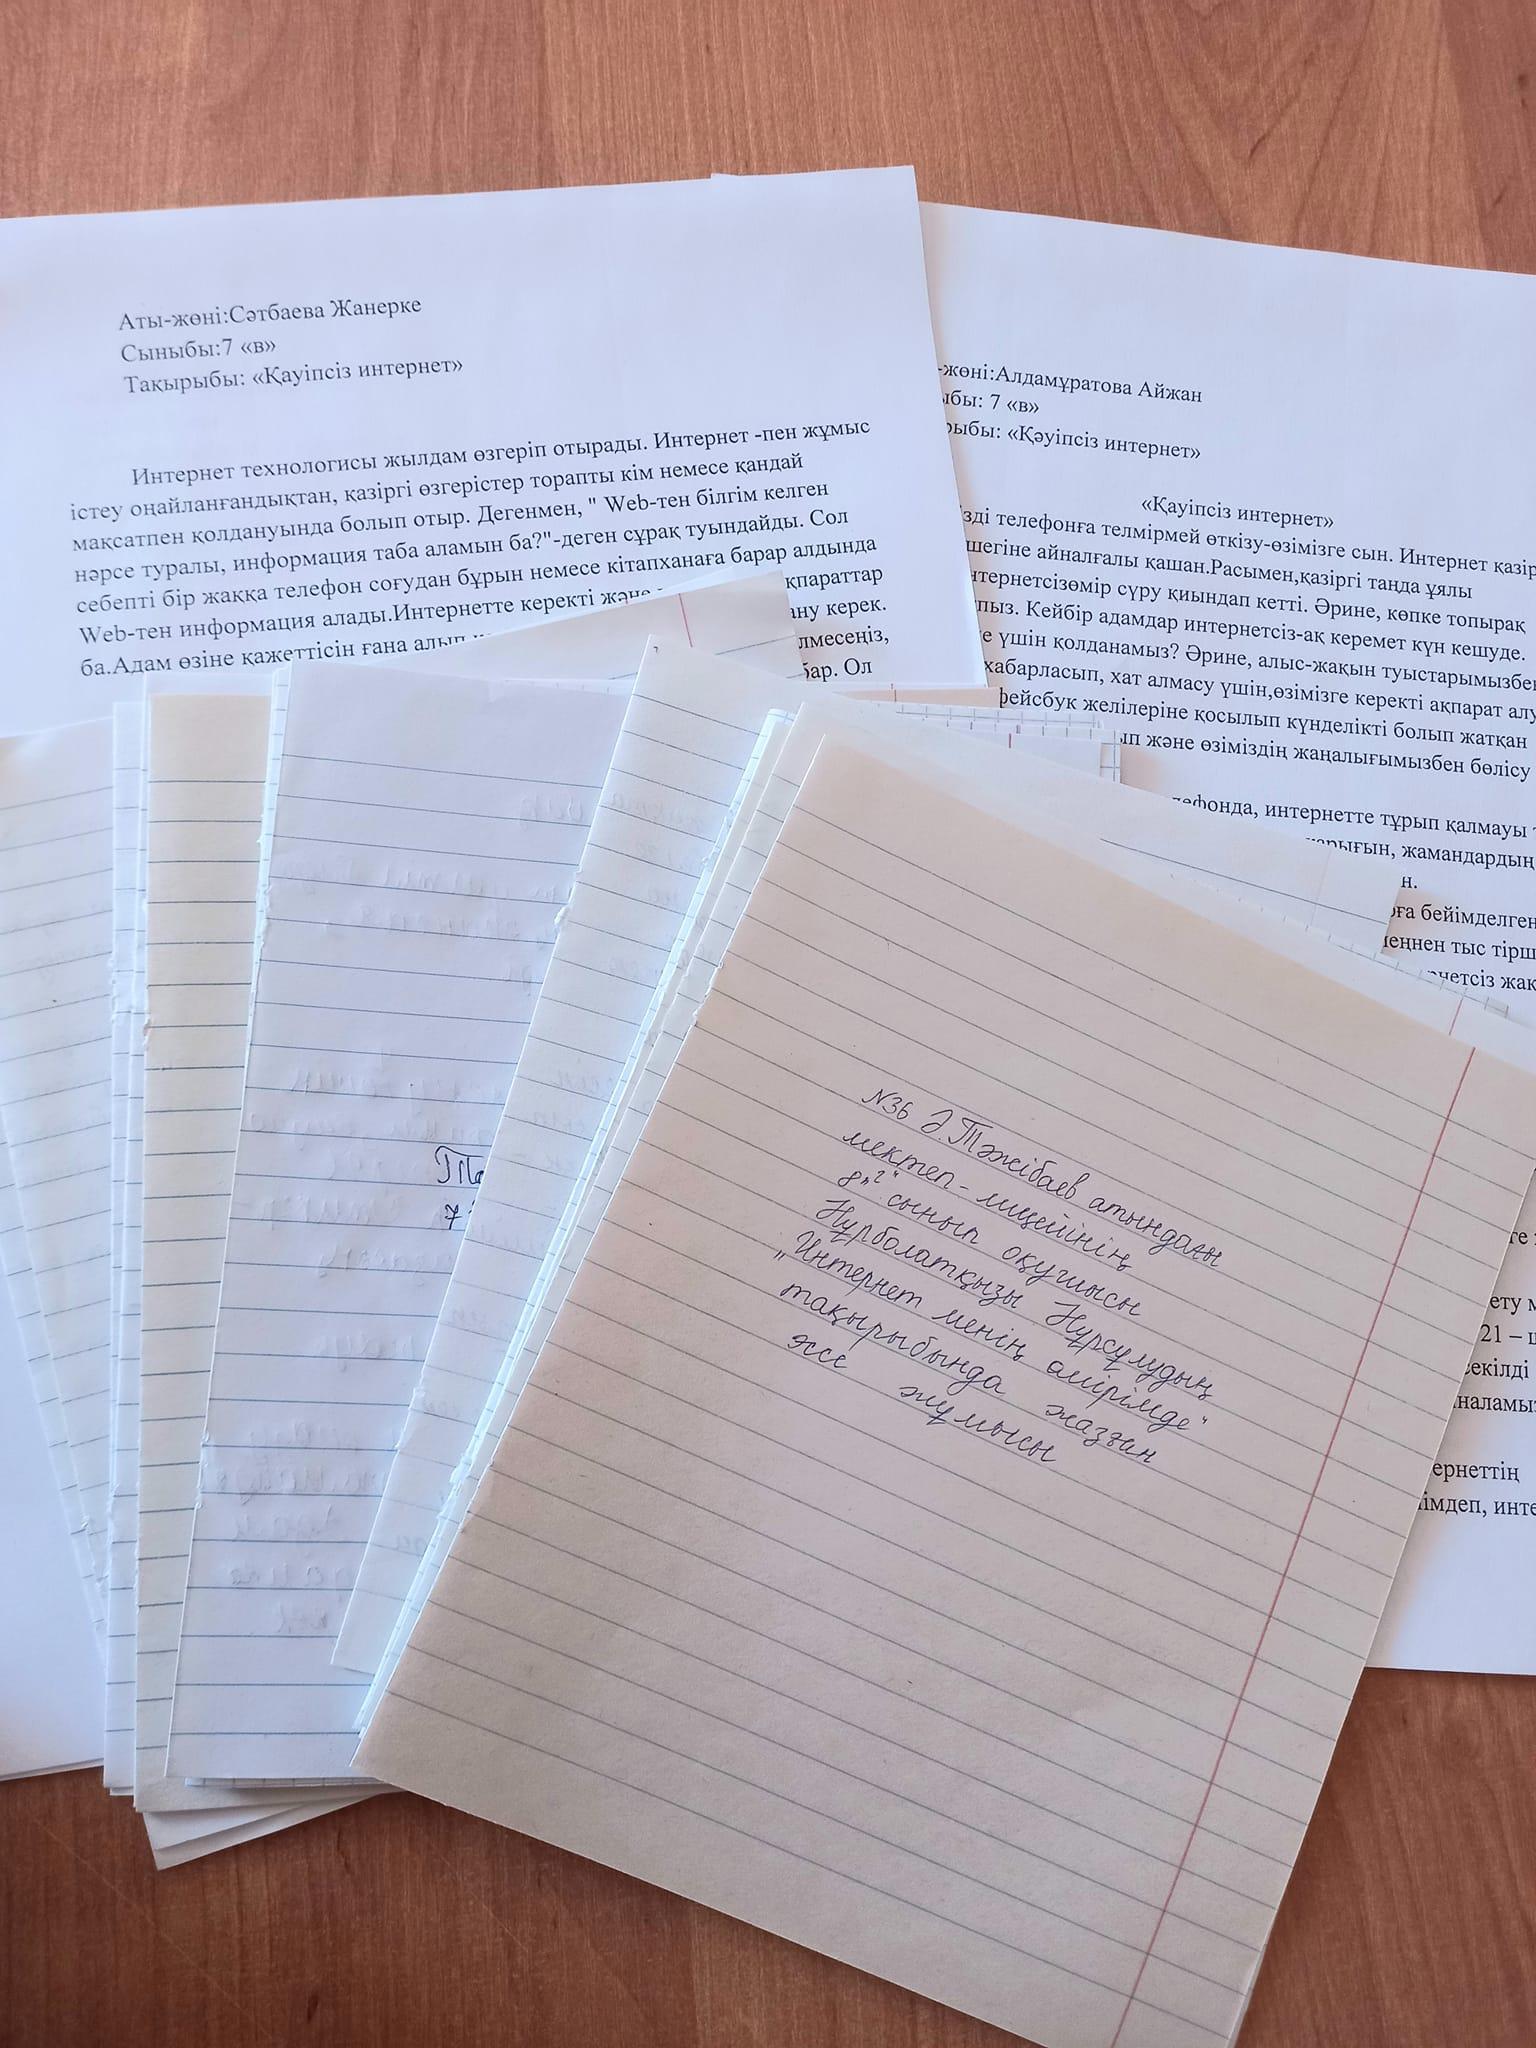 Аты-жөні:Сәтбаева Жанерке
Сыныбы:7 «в»
Тақырыбы: «Қауіпсіз интернет»
Интернет технологисы жылдам өзгеріп отырады. Интернет -пен жұмыс
істеу оңайланғандықтан, қазіргі өзгерістер торапты кім немесе қандай
мақсатпен қолдануында болып отыр. Дегенмен, " Web-тен білгім келген
нәрсе туралы, информация таба аламын ба?"-деген сұрақ туындайды. Сол
себепті бір жаққа телефон соғудан бұрын немесе кітапханаға барар алдында
Web-тен информация алады.Интернетте керекті және қпараттар
ба.Адам өзіне қажеттісін ғана алып ану керек.
лмесеңіз,
бар. Ол
-жөні:Алдамұратова Айжан
ыбы: 7 «в»
рыбы: «Қәуіпсіз интернет»
«Қауіпсіз интернет»
ізді телефонға телмірмей өткізу-өзімізге сын. Интернет қазір
шегіне айналғалы қашан.Расымен,қазіргі таңда ұялы
нтернетсізөмір сүру қиындап кетті. Әрине, көпке топырақ
пыз. Кейбір адамдар интернетсіз-ақ керемет күн кешуде.
е үшін қолданамыз? Әрине, алыс-жақын туыстарымызбен
хабарласып, хат алмасу үшін,өзімізге керекті ақпарат алу
фейсбук желілеріне қосылып күнделікті болып жатқан
ып және өзіміздің жаңалығымызбен бөлісу
лефонда, интернетте тұрып қалмауы
жамандардың
н.
ға бейімделген
еңнен тыс тірш
рнетсіз жақ
ге
ету м
21 –
секілді
наламыз
ернеттің
імдеп, инте
Та
7
№36 Ә.Тәжібаев атындағы
мектеп-лицейінің
8 „г“ сынып оқушысы
Нұрболатқызы Нұрсұлудың
„Интернет менің өмірімде“
тақырыбында жазған
эссе жұмысы